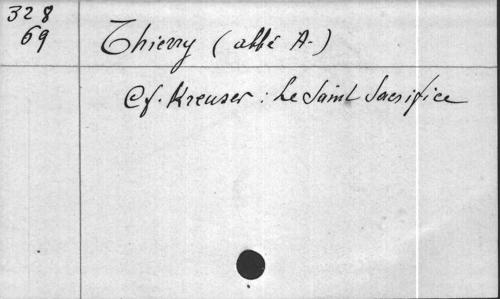 328
69
Thierry (abbé A.)
Cf. Kreuser : Le Saint Sacrifice